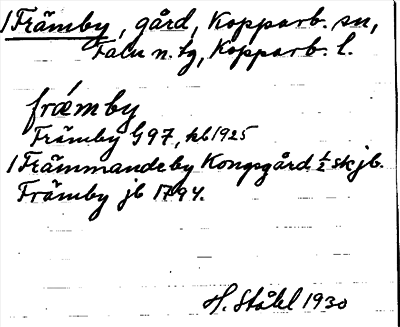 /Främby, gård, Kopparb. sn,
Falu n. tg, Kopparb. l.
fræ̂mby
Främby G97, kb 1925
/Främmandeby Kongsgård ½ sk jb.
Främby jb 1794.
H. Ståhl 1930